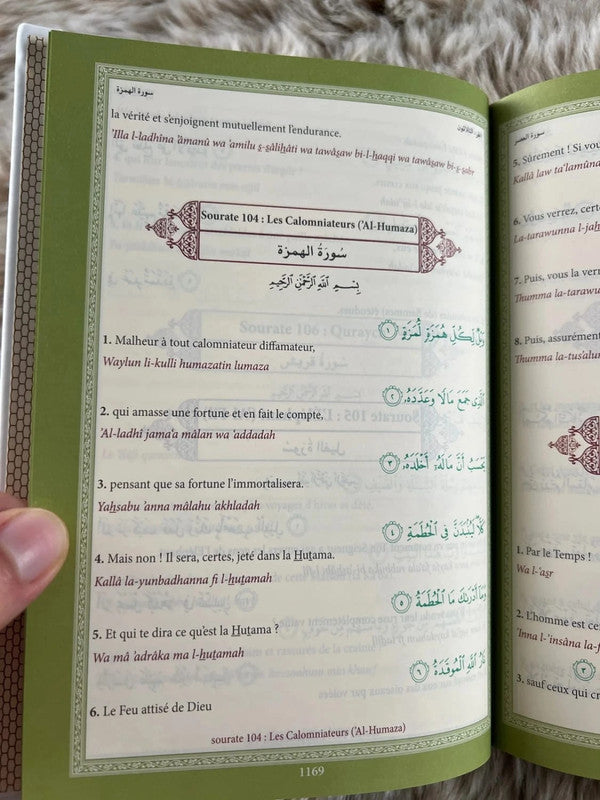 سورة الهمزة
الجزء الثلاثون
la vérité et s'enjoignent mutuellement l'endurance.
'Illa l-ladhîna 'âmanû wa 'amilu ṣ-ṣâliḥâti wa tawâṣaw bi-l-ḥaqqi wa tawâṣaw bi-ṣ-ṣabr
Sourate 104 : Les Calomniateurs ('Al-Humaza)
سُورَةُ الهمزة
بِسْمِ اللَّهِ الرَّحْمَٰنِ الرَّحِيمِ
وَيْلٌ لِّكُلِّ هُمَزَةٍ لُّمَزَةٍ ١
1. Malheur à tout calomniateur diffamateur,
Waylun li-kulli humazatin lumaza
الَّذِى جَمَعَ مَالًا وَعَدَّدَهُ ٢
2. qui amasse une fortune et en fait le compte,
'Al-ladhî jama'a mâlan wa 'addadah
يَحْسَبُ أَنَّ مَالَهُ أَخْلَدَهُ ٣
3. pensant que sa fortune l'immortalisera.
Yaḥsabu 'anna mâlahu 'akhladah
كَلَّا لَيُنۢبَذَنَّ فِى الْحُطَمَةِ ٤
4. Mais non ! Il sera, certes, jeté dans la Hutama.
Kallâ la-yunbadhanna fi l-ḥuṭamah
وَمَا أَدْرَىٰكَ مَا الْحُطَمَةُ ٥
5. Et qui te dira ce qu'est la Hutama ?
Wa mâ 'adrâka ma l-ḥuṭamah
نَارُ اللَّهِ الْمُوقَدَةُ ٦
6. Le Feu attisé de Dieu
sourate 104 : Les Calomniateurs ('Al-Humaza)
1169
سورة العصر
5. Sûrement ! Si vou
Kallâ law ta'lamûna
6. Vous verrez, certe
La-tarawunna l-jaḥ
7. Puis, vous la verr
Thumma la-tarawu
8. Puis, assurément
Thumma la-tus'alu
1. Par le Temps !
Wa l-'aṣr
2. L'homme est ce
'Inna l-'insâna la-f
٣
3. sauf ceux qui cr